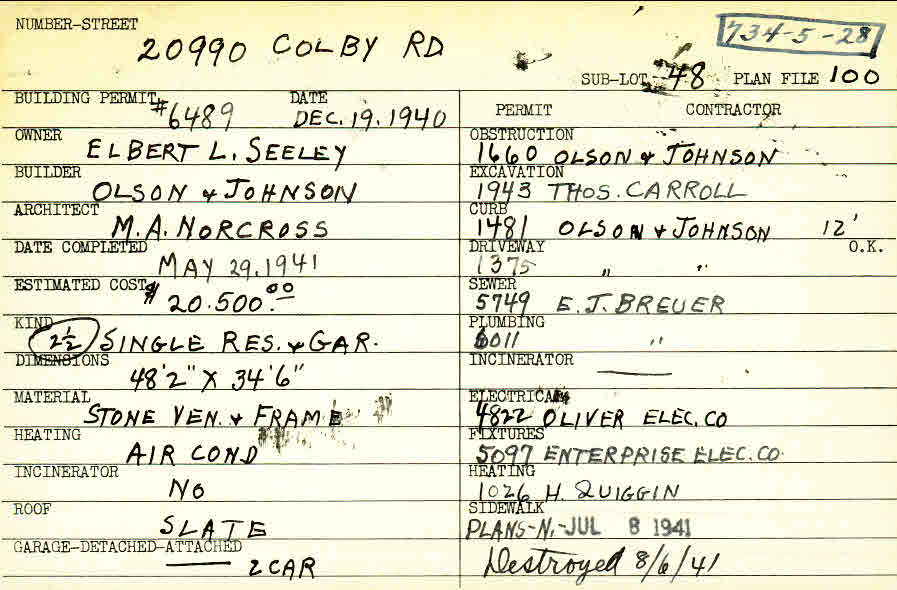 NUMBER-STREET
20990 COLBY RD
734-5-28
SUB-LOT 48 PLAN FILE 100
BUILDING PERMIT #6489 DATE DEC. 19. 1940
OWNER
ELBERT L. SEELEY
BUILDER
OLSON & JOHNSON
ARCHITECT
M. A. NORCROSS
DATE COMPLETED
MAY 29, 1941
ESTIMATED COST
$20.500.00
KIND
2½ SINGLE RES. & GAR.
DIMENSIONS
48'2" X 34'6"
MATERIAL
STONE VEN. & FRAME
HEATING
AIR COND
INCINERATOR
NO
ROOF
SLATE
GARAGE-DETACHED-ATTACHED
2 CAR
PERMIT CONTRACTOR
OBSTRUCTION
1660 OLSON & JOHNSON
EXCAVATION
1943 THOS. CARROLL
CURB
1481 OLSON & JOHNSON 12'
DRIVEWAY O.K.
1375 " "
SEWER
5749 E. J. BREUER
PLUMBING
6011 "
INCINERATOR
ELECTRICAL
4822 OLIVER ELEC. CO
FIXTURES
5097 ENTERPRISE ELEC. CO.
HEATING
1026 H. QUIGGIN
SIDEWALK
PLANS-N.-JUL 8 1941
Destroyed 8/6/41